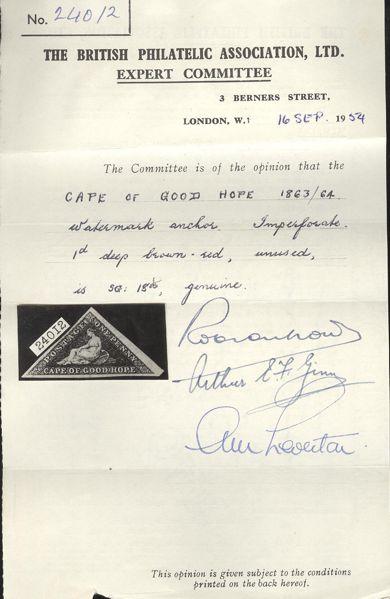 No. 24012
THE BRITISH PHILATELIC ASSOCIATION, LTD.
EXPERT COMMITTEE
3 BERNERS STREET,
LONDON, W.1 16 SEP. 1954
The Committee is of the opinion that the
CAPE OF GOOD HOPE 1863/64
watermark anchor. Imperforate.
1d deep brown-red, unused,
is SG. 18b, genuine.
24012
POSTAGE ONE PENNY
CAPE OF GOOD HOPE
Arthur E F Ginn
This opinion is given subject to the conditions
printed on the back hereof.